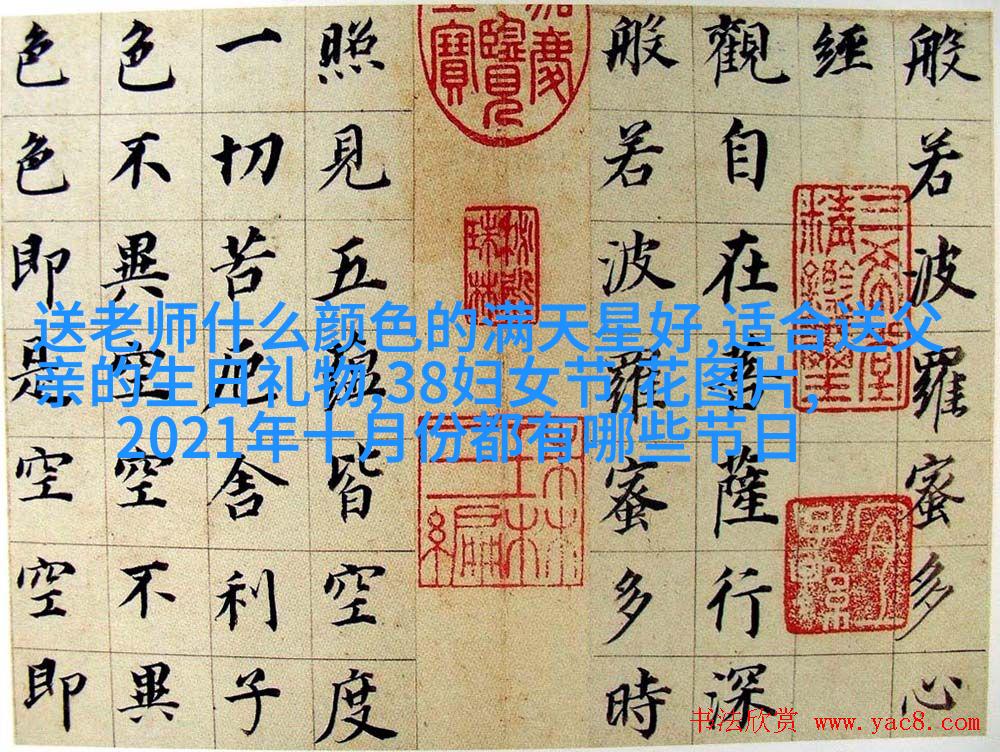 送老师什么颜色的满天星好,适合送父
亲的生日礼物,38妇女节,花图片,
2021年十月份都有哪些节日
般若波羅蜜多心
經
觀自在菩薩行深
般若波羅蜜多時
照見五蘊皆空度
一切苦厄舍利子
色不異空空不異
色色即是空空即
三希堂精鑑璽
宜子孫
秘殿珠林
书法欣赏 www.yac8.com